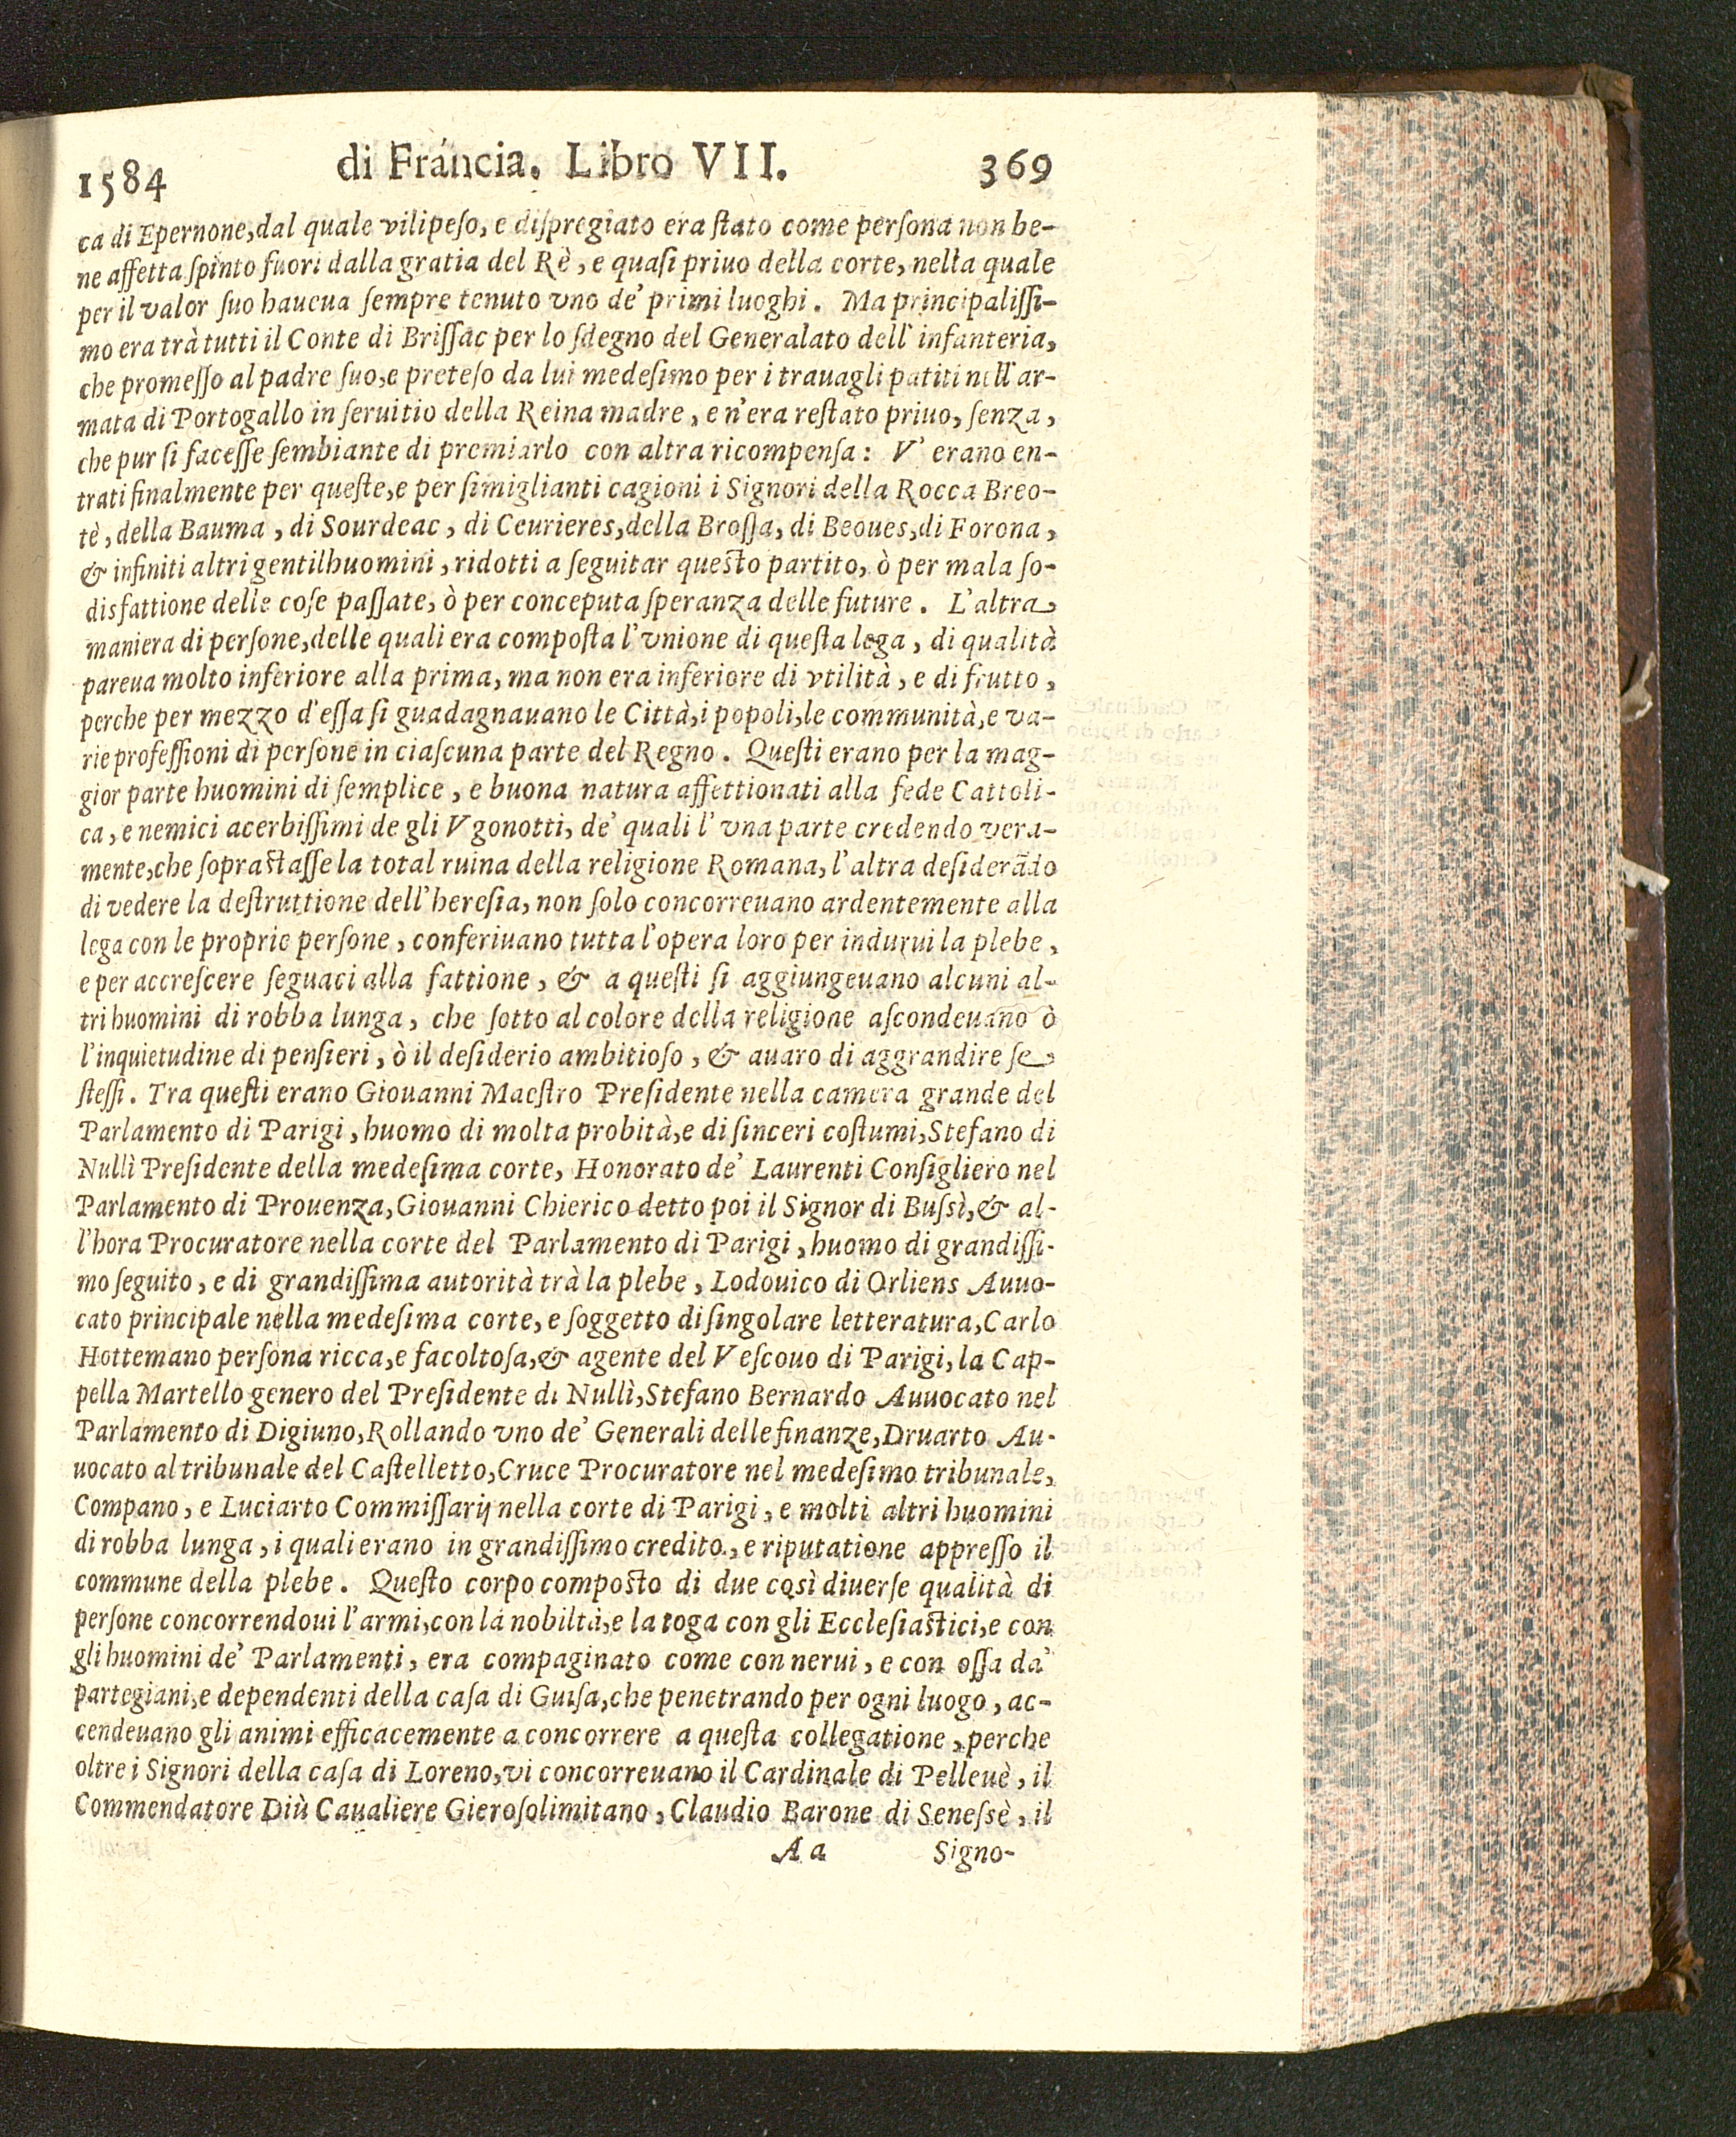 1584 di Francia. Libro VII. 369
ca di Epernone, dal quale vilipeſo, e diſpregiato era ſtato come perſona non be-
ne affetta ſpinto fuori dalla gratia del Rè, e quaſi priuo della corte, nella quale
per il valor ſuo haueua ſempre tenuto vno de' primi luoghi. Ma principaliſſi-
mo era trà tutti il Conte di Briſſac per lo ſdegno del Generalato dell'infanteria,
che promeſſo al padre ſuo, e preteſo da lui medeſimo per i trauagli patiti nell'ar-
mata di Portogallo in ſeruitio della Reina madre, e n'era reſtato priuo, ſenza,
che pur ſi faceſſe ſembiante di premiarlo con altra ricompenſa: V' erano en-
trati finalmente per queſte, e per ſimiglianti cagioni i Signori della Rocca Breo-
tè, della Bauma, di Sourdeac, di Ceurieres, della Broſſa, di Beoues, di Forona,
& infiniti altri gentilhuomini, ridotti a ſeguitar queſto partito, ò per mala ſo-
disfattione delle coſe paſſate, ò per conceputa ſperanza delle future. L'altra
maniera di perſone, delle quali era compoſta l'vnione di queſta lega, di qualità
pareua molto inferiore alla prima, ma non era inferiore di vtilità, e di frutto,
perche per mezzo d'eſſa ſi guadagnauano le Città, i popoli, le communità, e va-
rie profeſſioni di perſone in ciaſcuna parte del Regno. Queſti erano per la mag-
gior parte huomini di ſemplice, e buona natura affettionati alla fede Cattoli-
ca, e nemici acerbiſſimi de gli Vgonotti, de' quali l'vna parte credendo vera-
mente, che ſopraſtaſſe la total ruina della religione Romana, l'altra deſiderãdo
di vedere la deſtruttione dell'hereſia, non ſolo concorreuano ardentemente alla
lega con le proprie perſone, conferiuano tutta l'opera loro per indurui la plebe,
e per accreſcere ſeguaci alla fattione, & a queſti ſi aggiungeuano alcuni al-
tri huomini di robba lunga, che ſotto al colore della religione aſcondeuano ò
l'inquietudine di penſieri, ò il deſiderio ambitioſo, & auaro di aggrandire ſe
ſteſſi. Tra queſti erano Giouanni Maeſtro Preſidente nella camera grande del
Parlamento di Parigi, huomo di molta probità, e di ſinceri coſtumi, Stefano di
Nullì Preſidente della medeſima corte, Honorato de' Laurenti Conſigliero nel
Parlamento di Prouenza, Giouanni Chierico detto poi il Signor di Buſsì, & al-
l'hora Procuratore nella corte del Parlamento di Parigi, huomo di grandiſſi-
mo ſeguito, e di grandiſſima autorità trà la plebe, Lodouico di Orliens Auuo-
cato principale nella medeſima corte, e ſoggetto di ſingolare letteratura, Carlo
Hottemano perſona ricca, e facoltoſa, & agente del Veſcouo di Parigi, la Cap-
pella Martello genero del Preſidente di Nullì, Stefano Bernardo Auuocato nel
Parlamento di Digiuno, Rollando vno de' Generali delle finanze, Druarto Au-
uocato al tribunale del Caſtelletto, Cruce Procuratore nel medeſimo tribunale,
Compano, e Luciarto Commiſſarij nella corte di Parigi, e molti altri huomini
di robba lunga, i quali erano in grandiſſimo credito, e riputatione appreſſo il
commune della plebe. Queſto corpo compoſto di due così diuerſe qualità di
perſone concorrendoui l'armi, con la nobiltà, e la toga con gli Eccleſiaſtici, e con
gli huomini de' Parlamenti, era compaginato come con nerui, e con oſſa da'
partegiani, e dependenti della caſa di Guiſa, che penetrando per ogni luogo, ac-
cendeuano gli animi efficacemente a concorrere a queſta collegatione, perche
oltre i Signori della caſa di Loreno, vi concorreuano il Cardinale di Pelleuè, il
Commendatore Diù Caualiere Gieroſolimitano, Claudio Barone di Seneſsè, il
Aa Signo-